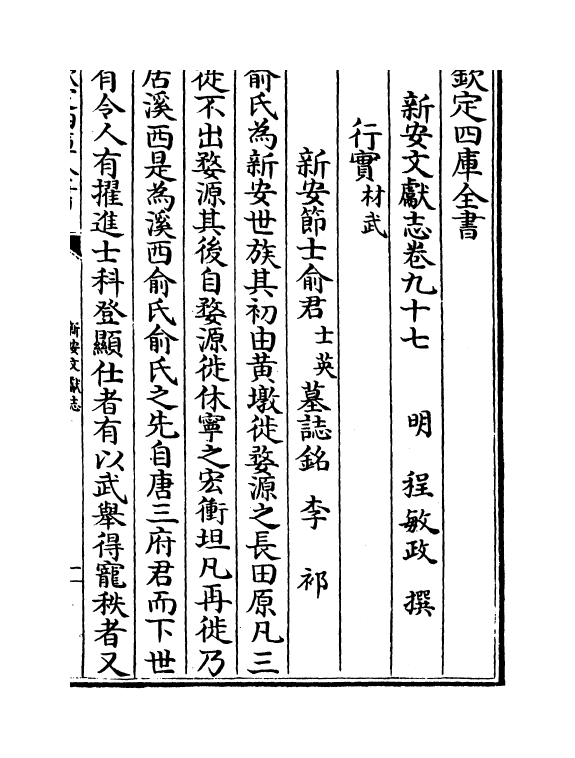 欽定四庫全書
新安文獻志卷九十七　明　程敏政　撰
行實材武
新安節士俞君士英墓誌銘　李　祁
俞氏為新安世族其初由黄墩徙婺源之長田原凡三
徙不出婺源其後自婺源徙休寧之宏衝坦凡再徙乃
居溪西是為溪西俞氏俞氏之先自唐三府君而下世
有令人有擢進士科登顯仕者有以武舉得寵秩者又
新安文獻志